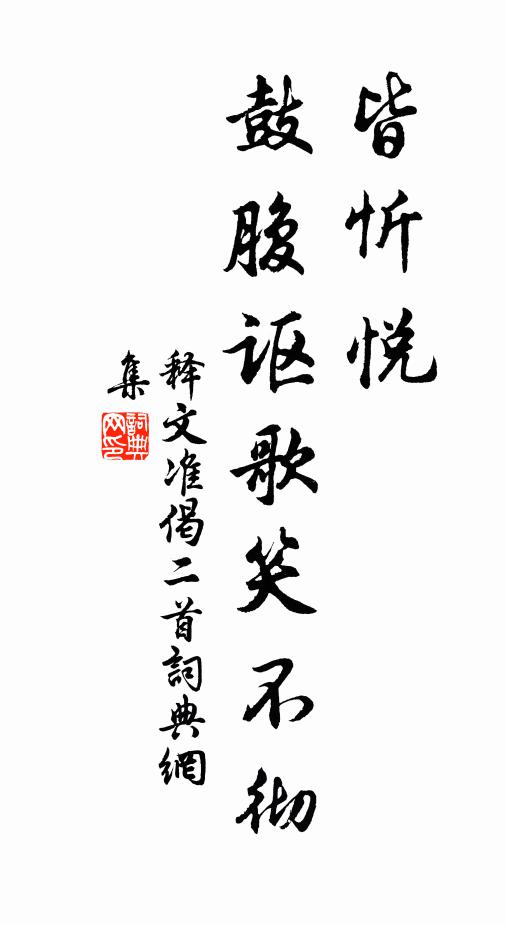 皆忻悦
鼓腹讴歌笑不彻
释文准偈二首詞典網
集
詞典
网印